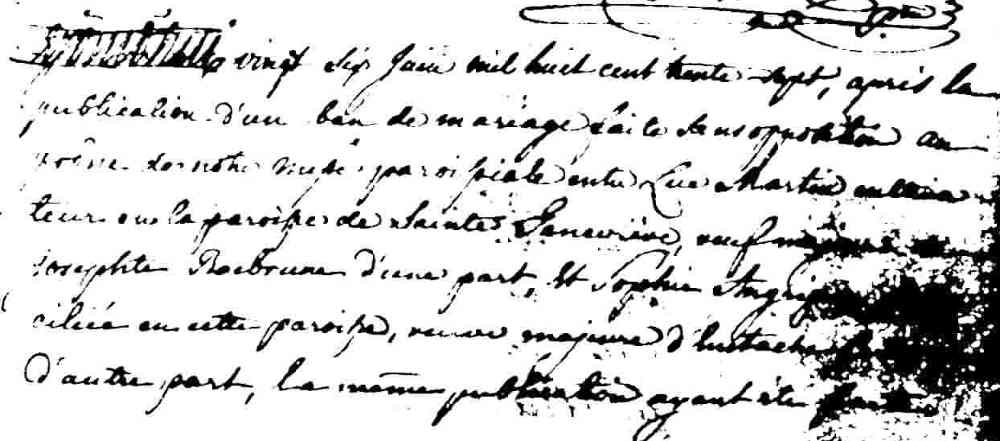 vingt six Juin mil huit cent trente sept, après la
publication d'un ban de mariage faite sans opposition au
prône de notre messe paroissiale entre Luc Martin cultiva
teur en la paroisse de Sainte Genevieve, veuf majeur de
Josephte Rocbrune d'une part, et Sophie
ciliée en cette paroisse, veuve majeure d'Eustache
d'autre part, la même publication ayant été faite